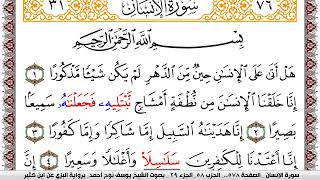 ٧٦ سُورَةُ الإِنْسَانِ ٣١
بِسْمِ ٱللَّهِ ٱلرَّحْمَـٰنِ ٱلرَّحِيمِ
هَلْ أَتَىٰ عَلَى ٱلْإِنسَـٰنِ حِينٌ مِّنَ ٱلدَّهْرِ لَمْ يَكُن شَيْـًٔا مَّذْكُورًا ١
إِنَّا خَلَقْنَا ٱلْإِنسَـٰنَ مِن نُّطْفَةٍ أَمْشَاجٍ نَّبْتَلِيهِۦ فَجَعَلْنَـٰهُۥ سَمِيعًۢا
بَصِيرًا ٢ إِنَّا هَدَيْنَـٰهُ ٱلسَّبِيلَ إِمَّا شَاكِرًا وَإِمَّا كَفُورًا ٣
إِنَّا أَعْتَدْنَا لِلْكَـٰفِرِينَ سَلَـٰسِلَا۟ وَأَغْلَـٰلًا وَسَعِيرًا ٤ إِنَّ
سورة الإنسان . الصفحة ٥٧٨ .. الحزب ٥٨ . الجزء ٢٩ . بصوت الشيخ يوسف نوح احمد . برواية البزي عن ابن كثير